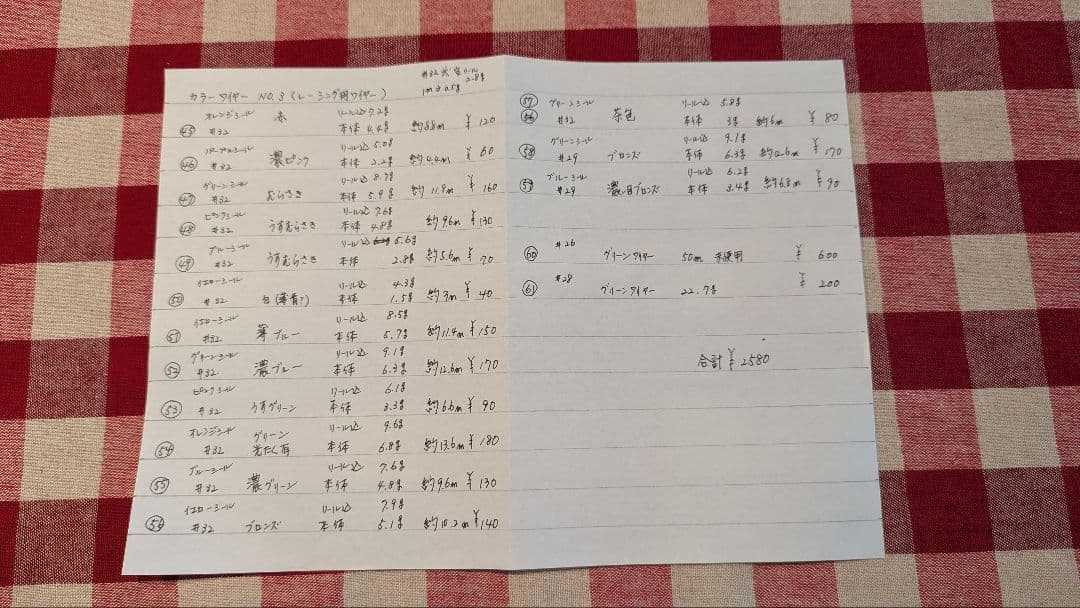 #32 空リール 2.8g
1m≒0.5g
カラーワイヤー NO.3 (レーシング用ワイヤー)
オレンジシール 赤 リール込 7.2g
45 #32 本体 4.4g 約8.8m ¥120
パープルシール リール込 5.0g
46 #32 濃ピンク 本体 2.2g 約4.4m ¥60
グリーンシール リール込 8.7g
47 #32 むらさき 本体 5.9g 約11.9m ¥160
ピンクシール リール込 7.6g
48 #32 うすむらさき 本体 4.8g 約9.6m ¥130
ブルーシール リール込 5.6g
49 #32 うすむらさき 本体 2.8g 約5.6m ¥70
イエローシール リール込 4.3g
50 #32 白(薄青?) 本体 1.5g 約3m ¥40
イエローシール リール込 8.5g
51 #32 薄ブルー 本体 5.7g 約11.4m ¥150
グリーンシール リール込 9.1g
52 #32 濃ブルー 本体 6.3g 約12.6m ¥170
ピンクシール リール込 6.1g
53 #32 うすグリーン 本体 3.3g 約6.6m ¥90
オレンジシール グリーン リール込 9.6g
54 #32 光たく有 本体 6.8g 約13.6m ¥180
ブルーシール リール込 7.6g
55 #32 濃グリーン 本体 4.8g 約9.6m ¥130
イエローシール リール込 7.9g
56 #32 ブロンズ 本体 5.1g 約10.2m ¥140
57 グリーンシール リール込 5.8g
#32 茶色 本体 3g 約6m ¥80
グリーンシール リール込 9.1g
58 #29 ブロンズ 本体 6.3g 約12.6m ¥170
ブルーシール リール込 6.2g
59 #29 濃い目ブロンズ 本体 3.4g 約6.8m ¥90
#26
60 グリーンワイヤー 50m 未使用 ¥600
#28
61 グリーンワイヤー 22.7g ¥200
合計 ¥2580